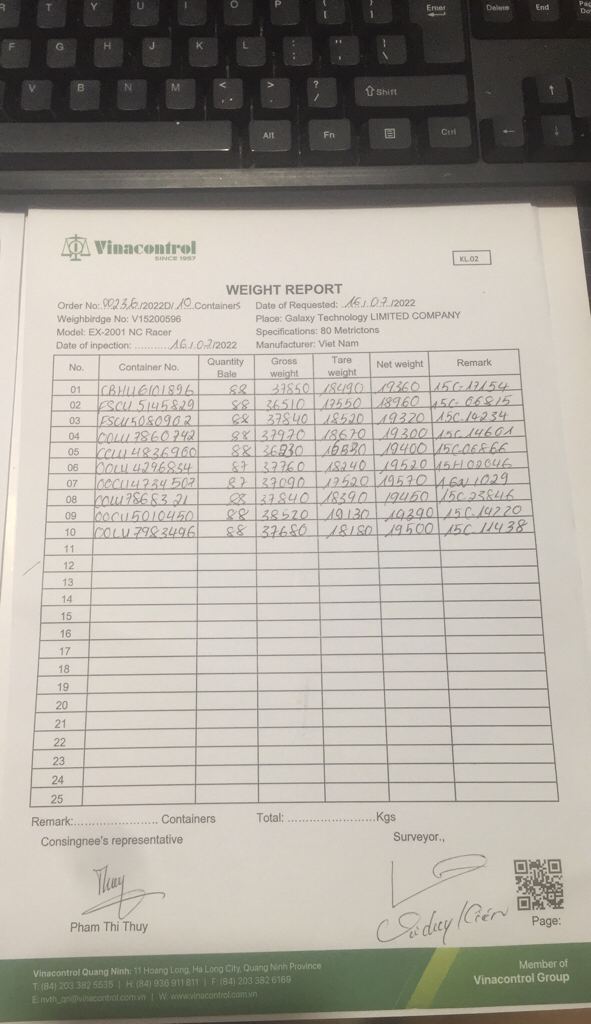 T Y U I O P Enter Delete End
F G H J K L
V B N M < > ? Shift
Alt Fn Ctrl
Vinacontrol
SINCE 1957
KL.02
WEIGHT REPORT
Order No: 00236/2022D/ 10 Containers Date of Requested: 16/07/2022
Weighbirdge No: V15200596 Place: Galaxy Technology LIMITED COMPANY
Model: EX-2001 NC Racer Specifications: 80 Metrictons
Date of inpection: ............16/07/2022 Manufacturer: Viet Nam
No. Container No. Quantity Bale Gross weight Tare weight Net weight Remark
01 CBHU6101896 88 37850 18490 19360 15C-17154
02 FSCU 5145829 88 36510 17550 18960 15C-06815
03 FSCU5080902 88 37840 18520 19320 15C 14234
04 OOLU 7860742 88 37970 18670 19300 15C 14601
05 88 19400 15C06866
06 OOLU 4296834 87 37760 18240 19520 15H 02046
07 OOCU4734507 87 37090 17520 19570
08 88 37840 18390 19450 15C 23846
09 OOCU5010450 88 38520 19130 19390 15C 14220
10 OOLU 7983496 88 37680 18180 19500 15C 11438
11
12
13
14
15
16
17
18
19
20
21
22
23
24
25
Remark:........................ Containers Total: ........................Kgs
Consingnee's representative Surveyor.,
Thuy
Pham Thi Thuy
Page:
Vinacontrol Quang Ninh: 11 Hoang Long, Ha Long City, Quang Ninh Province
T: (84) 203 382 5535 | H: (84) 936 911 811 | F: (84) 203 382 6169
E: nvth_qn@vinacontrol.com.vn | W: www.vinacontrol.com.vn
Member of
Vinacontrol Group